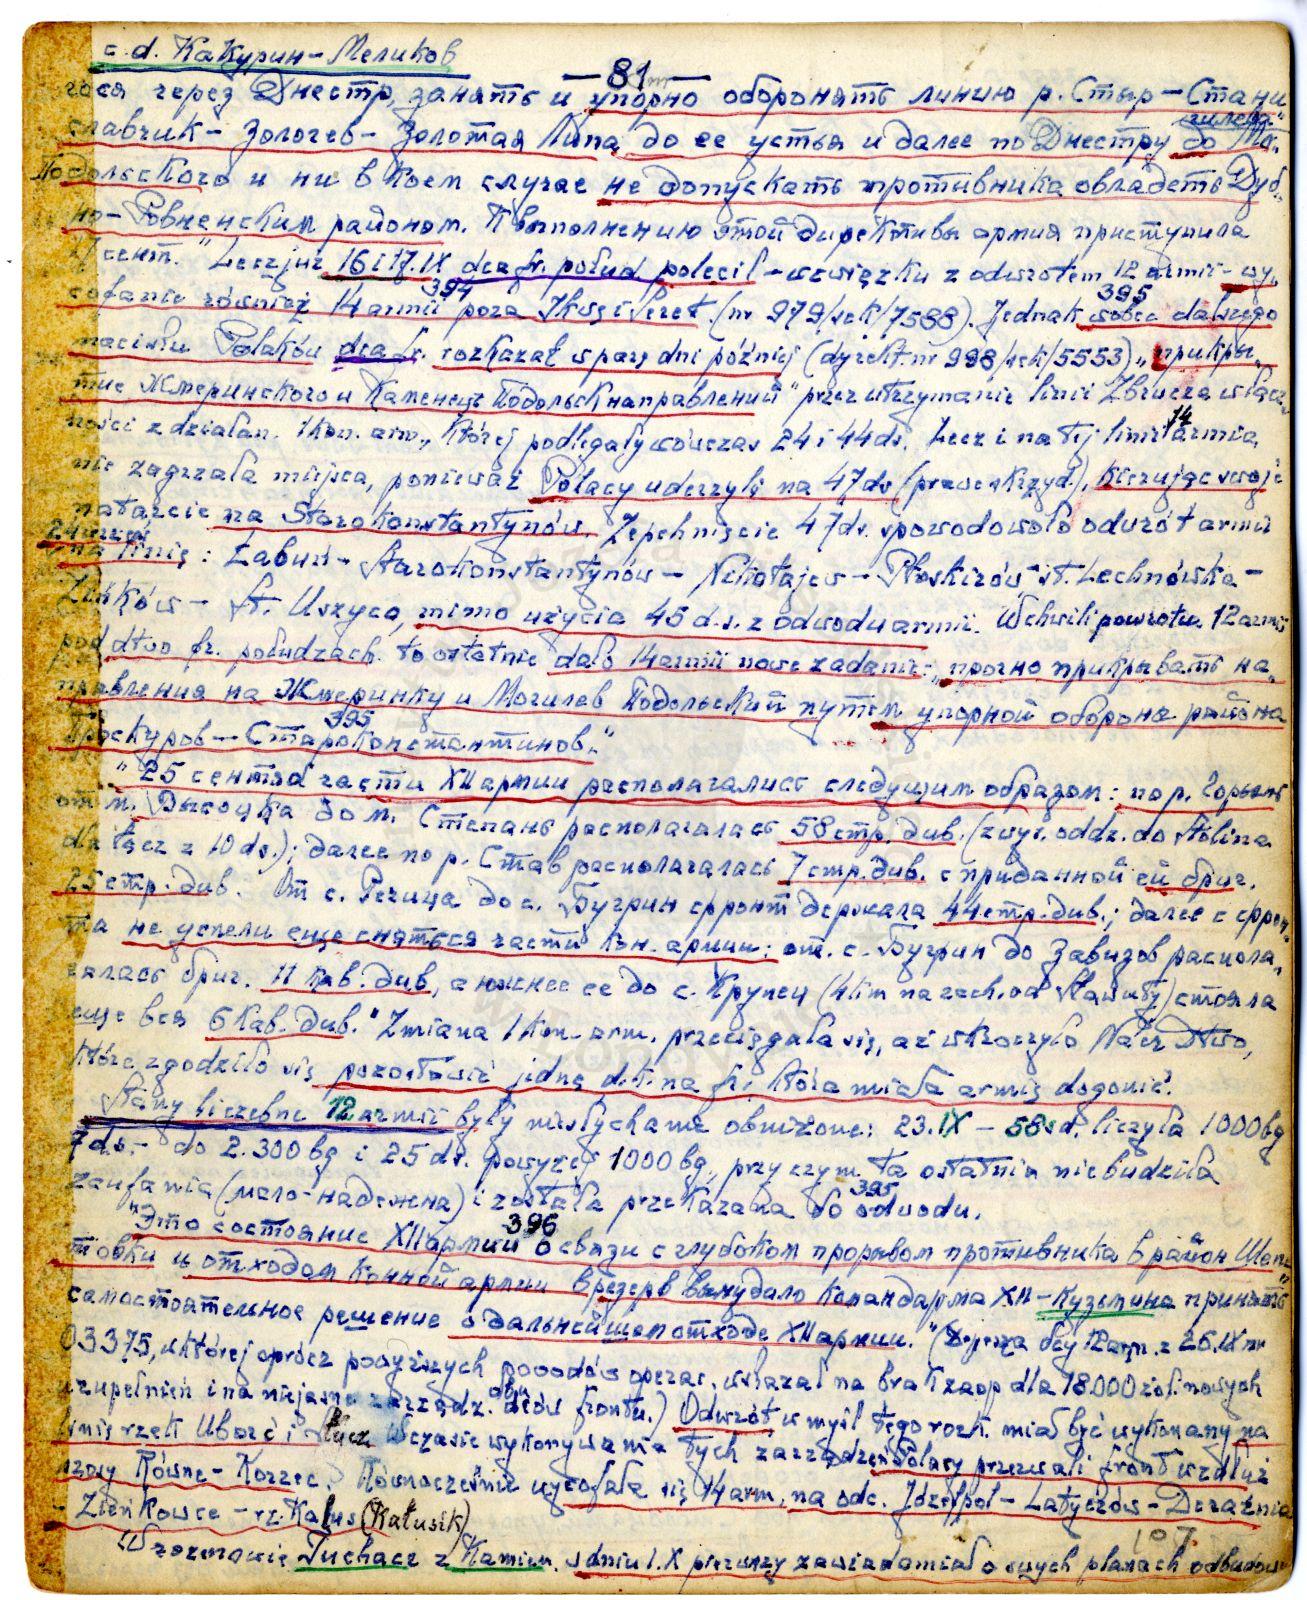 c.d. Какурин-Меликов
— 81 —
гося через Днестр занять и упорно оборонять линию р. Стыр – Стани
славчик – Золочев – Золотая Липа до ее устья и далее по Днестру до Мо.
гилева"
Подольского и ни в коем случае не допускать противника овладеть Дуб.
но-Ровненским районом. К выполнению этой директивы армия приступила
сент." Lecz już 16 i 17.IX dca fr. połud polecił – w związku z odwrotem 12 armii – wy,
394
cofanie również 14 armii poza Ikwę i Seret (nr 979/sek/7588). Jednak wobec dalszego
395
nacisku Polaków dca fr. rozkazał w parę dni później (dyrekt. nr 998/sek/5553) „прикры„
тие Жмеринского и Каменец Подольск направлений" przez utrzymanie linii Zbrucza w łącz,
ności z działan. 1 kon. arm., której podlegały wówczas 24 i 44 ds. Lecz i na tej linii 14 armia
nie zagrzała miejsca, ponieważ Polacy uderzyli na 47 ds (prawe skrzyd.), kierując swoje
natarcie na Starokonstantynów. Zepchnięcie 47 ds. spowodowało odwrót armii
na linię: Łabuń – Starokonstantynów – Nikołajew – Płoskirów – st. Lechnówka –
Zińków – St. Uszyca, mimo użycia 45 d.s. z odwodu armii. W chwili powrotu 12 armii
pod dtwo fr. połudzach. to ostatnie dało 14 armii nowe zadanie: „прочно прикрывать на„
правления на Жмеринку и Могилев Подольский путем упорной обороны района
395
Проскуров – Староконстантинов."
„25 сентяб части XII армии располагались следующим образом: по р. Горынь
от м. Высоцка до м. Степань располагалась 58 стр. див. (zwys. oddz. do Stolina
dla łącz z 10 ds.); далее по р. Став располагалась 7 стр. див. с приданной ей бриг.
25 стр. див. От с. Речица до с. Бугрин фронт держала 44 стр. див.; далее с фрон„
та не успели еще сняться части кон. армии: от с. Бугрин до Завизов распола„
галась бриг. 11 кав. див, а южнее ее до с. Крупец (4 km na zach. od Sławuty) стояла
еще вся 6 кав. див." Zmiana 1 kon. arm. przeciągała się, aż wkroczyło Nacz Dtwo,
które zgodziło się pozostawić jedną d.k. na fr., która miała armię dogonić.
Stany liczebne 12 armii były niesłychanie obniżone: 23.IX – 58 sd. liczyła 1000 bg
7 ds. – do 2.300 bg i 25 ds. powyżej 1000 bg., przy czym ta ostatnia nie budziła
zaufania (мало-надежна) i została przekazana do odwodu.
395
396
„Это состояние XII армии в связи с глубоким прорывом противника в район Шепе„
товки и отходом конной армии в резерв вынудило командарма XII – Кузьмина принять
самостоятельное решение о дальнейшем отходе XII армии." (Dyrekt dcy 12 arm. z 26.IX nr
03375, w której oprócz powyższych powodów operac. wskazał na brak zaop dla 18.000 żoł. nowych
uzupełnień i na niejasne zarządz. obu dców frontu.) Odwrót w myśl tego rozk. miał być wykonany na
linię rzek Uborć i Słucz. W czasie wykonywania tych zarządzeń Polacy przerwali front wzdłuż
szosy Równe – Korzec. Równocześnie wycofała się 14 arm. na odc. Izdespol – Latyczów – Deraźnia
– Zieńkowce – rz. Kałus (Kałusik)
W rozmowie Tuchacz z Kamien. w dniu 1.X pierwszy zawiadomiał o swych planach odbudow
107